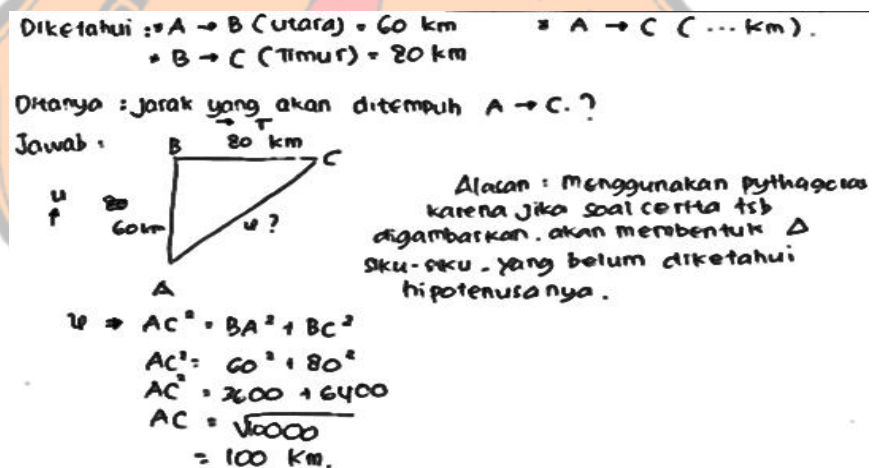 Diketahui : * A → B (utara) = 60 km * A → C ( ... km).
* B → C (Timur) = 80 km
Ditanya : jarak yang akan ditempuh A → C. ?
Jawab :
→ T
B 80 km C
u ↑
60 km ?
A
Alasan : menggunakan pythagoras
karena jika soal cerita tsb
digambarkan. akan membentuk Δ
siku-siku. yang belum diketahui
hipotenusanya.
⇒ AC² = BA² + BC²
AC² = 60² + 80²
AC² = 3600 + 6400
AC = √10000
= 100 km.